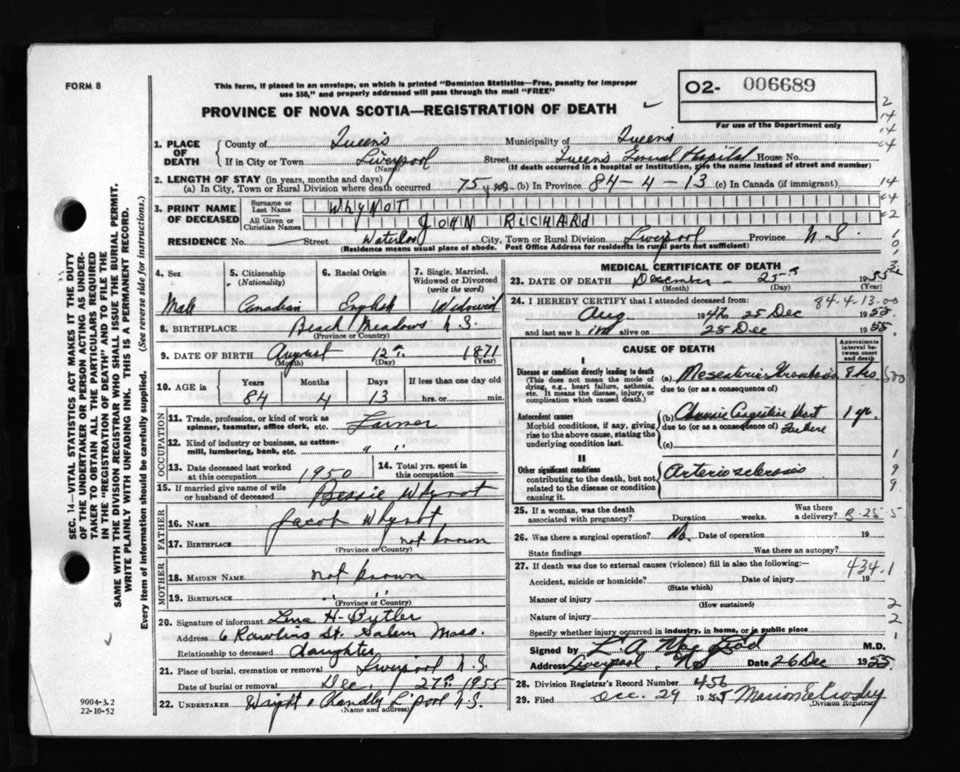 FORM 8
This form, if placed in an envelope, on which is printed "Dominion Statistics—Free, penalty for improper
use $50," and properly addressed will pass through the mail "FREE"
PROVINCE OF NOVA SCOTIA—REGISTRATION OF DEATH
O2- 006689
For use of the Department only
1. PLACE OF DEATH
County of Queens Municipality of Queens
If in City or Town Liverpool Street Queens Hospital House No.
(Name) (If death occurred in a hospital or institution, give the name instead of street and number)
2. LENGTH OF STAY (in years, months and days)
(a) In City, Town or Rural Division where death occurred 75 yrs (b) In Province 84-4-13 (c) In Canada (if immigrant)
3. PRINT NAME OF DECEASED
Surname or Last Name WHYNOT
All Given or Christian Names JOHN RICHARD
RESIDENCE No. Street Waterloo City, Town or Rural Division Liverpool Province N.S.
(Residence means usual place of abode. Post Office Address for residents in rural parts not sufficient)
SEC. 14—VITAL STATISTICS ACT MAKES IT THE DUTY
OF THE UNDERTAKER OR PERSON ACTING AS UNDER-
TAKER TO OBTAIN ALL THE PARTICULARS REQUIRED
IN THE "REGISTRATION OF DEATH" AND TO FILE THE
SAME WITH THE DIVISION REGISTRAR WHO SHALL ISSUE THE BURIAL PERMIT.
WRITE PLAINLY WITH UNFADING INK. THIS IS A PERMANENT RECORD.
Every item of information should be carefully supplied. (See reverse side for instructions.)
4. Sex Male
5. Citizenship (Nationality) Canadian
6. Racial Origin English
7. Single, Married, Widowed or Divorced (write the word) Widowed
8. BIRTHPLACE Beach Meadows N.S.
9. DATE OF BIRTH August 12th 1871
(Month) (Day) (Year)
10. AGE in Years Months Days If less than one day old
84 4 13 hrs. or min.
OCCUPATION
11. Trade, profession, or kind of work as
spinner, teamster, office clerk, etc. Farmer
12. Kind of industry or business, as cotton-
mill, lumbering, bank, etc. " "
13. Date deceased last worked
at this occupation 1950
14. Total yrs. spent in
this occupation
15. If married give name of wife
or husband of deceased Bessie Whynot
FATHER
16. NAME Jacob Whynot
17. BIRTHPLACE not known
(Province or Country)
MOTHER
18. MAIDEN NAME not known
19. BIRTHPLACE " "
(Province or Country)
20. Signature of informant Lena H. Butler
Address 6 Rawlins St. Salem Mass.
Relationship to deceased daughter
21. Place of burial, cremation or removal Liverpool N.S.
Date of burial or removal Dec 27th 1955
22. UNDERTAKER Wright L'pool N.S.
(Name and address)
9004-3.2
22-10-52
MEDICAL CERTIFICATE OF DEATH
23. DATE OF DEATH December 25th 1955
(Month) (Day)
84-4-13-00
24. I HEREBY CERTIFY that I attended deceased from:
Aug 1947 to 25 Dec 1955
and last saw him alive on 25 Dec 1955.
CAUSE OF DEATH
Approximate interval between onset and death
I
Disease or condition directly leading to death
(This does not mean the mode of
dying, e.g., heart failure, asthenia,
etc. It means the disease, injury, or
complication which caused death.)
(a) Mesenteric Thrombosis 8 hrs
due to (or as a consequence of)
Antecedent causes
Morbid conditions, if any, giving
rise to the above cause, stating the
underlying condition last.
(b) Chronic Congestive Heart Failure 1 yr.
due to (or as a consequence of)
(c)
II
Other significant conditions
contributing to the death, but not
related to the disease or condition
causing it.
Arteriosclerosis
25. If a woman, was the death
associated with pregnancy? Duration weeks. Was there
a delivery?
26. Was there a surgical operation? No Date of operation 19
State findings Was there an autopsy?
27. If death was due to external causes (violence) fill in also the following:— 434.1
Accident, suicide or homicide? Date of injury 19
(State which)
Manner of injury
(How sustained)
Nature of injury
Specify whether injury occurred in industry, in home, or in public place
Signed by M.D.
Address Liverpool, NS Date 26 Dec 1955
28. Division Registrar's Record Number 456
29. Filed Dec. 29 1955 Marion E. Crosby
(Division Registrar)